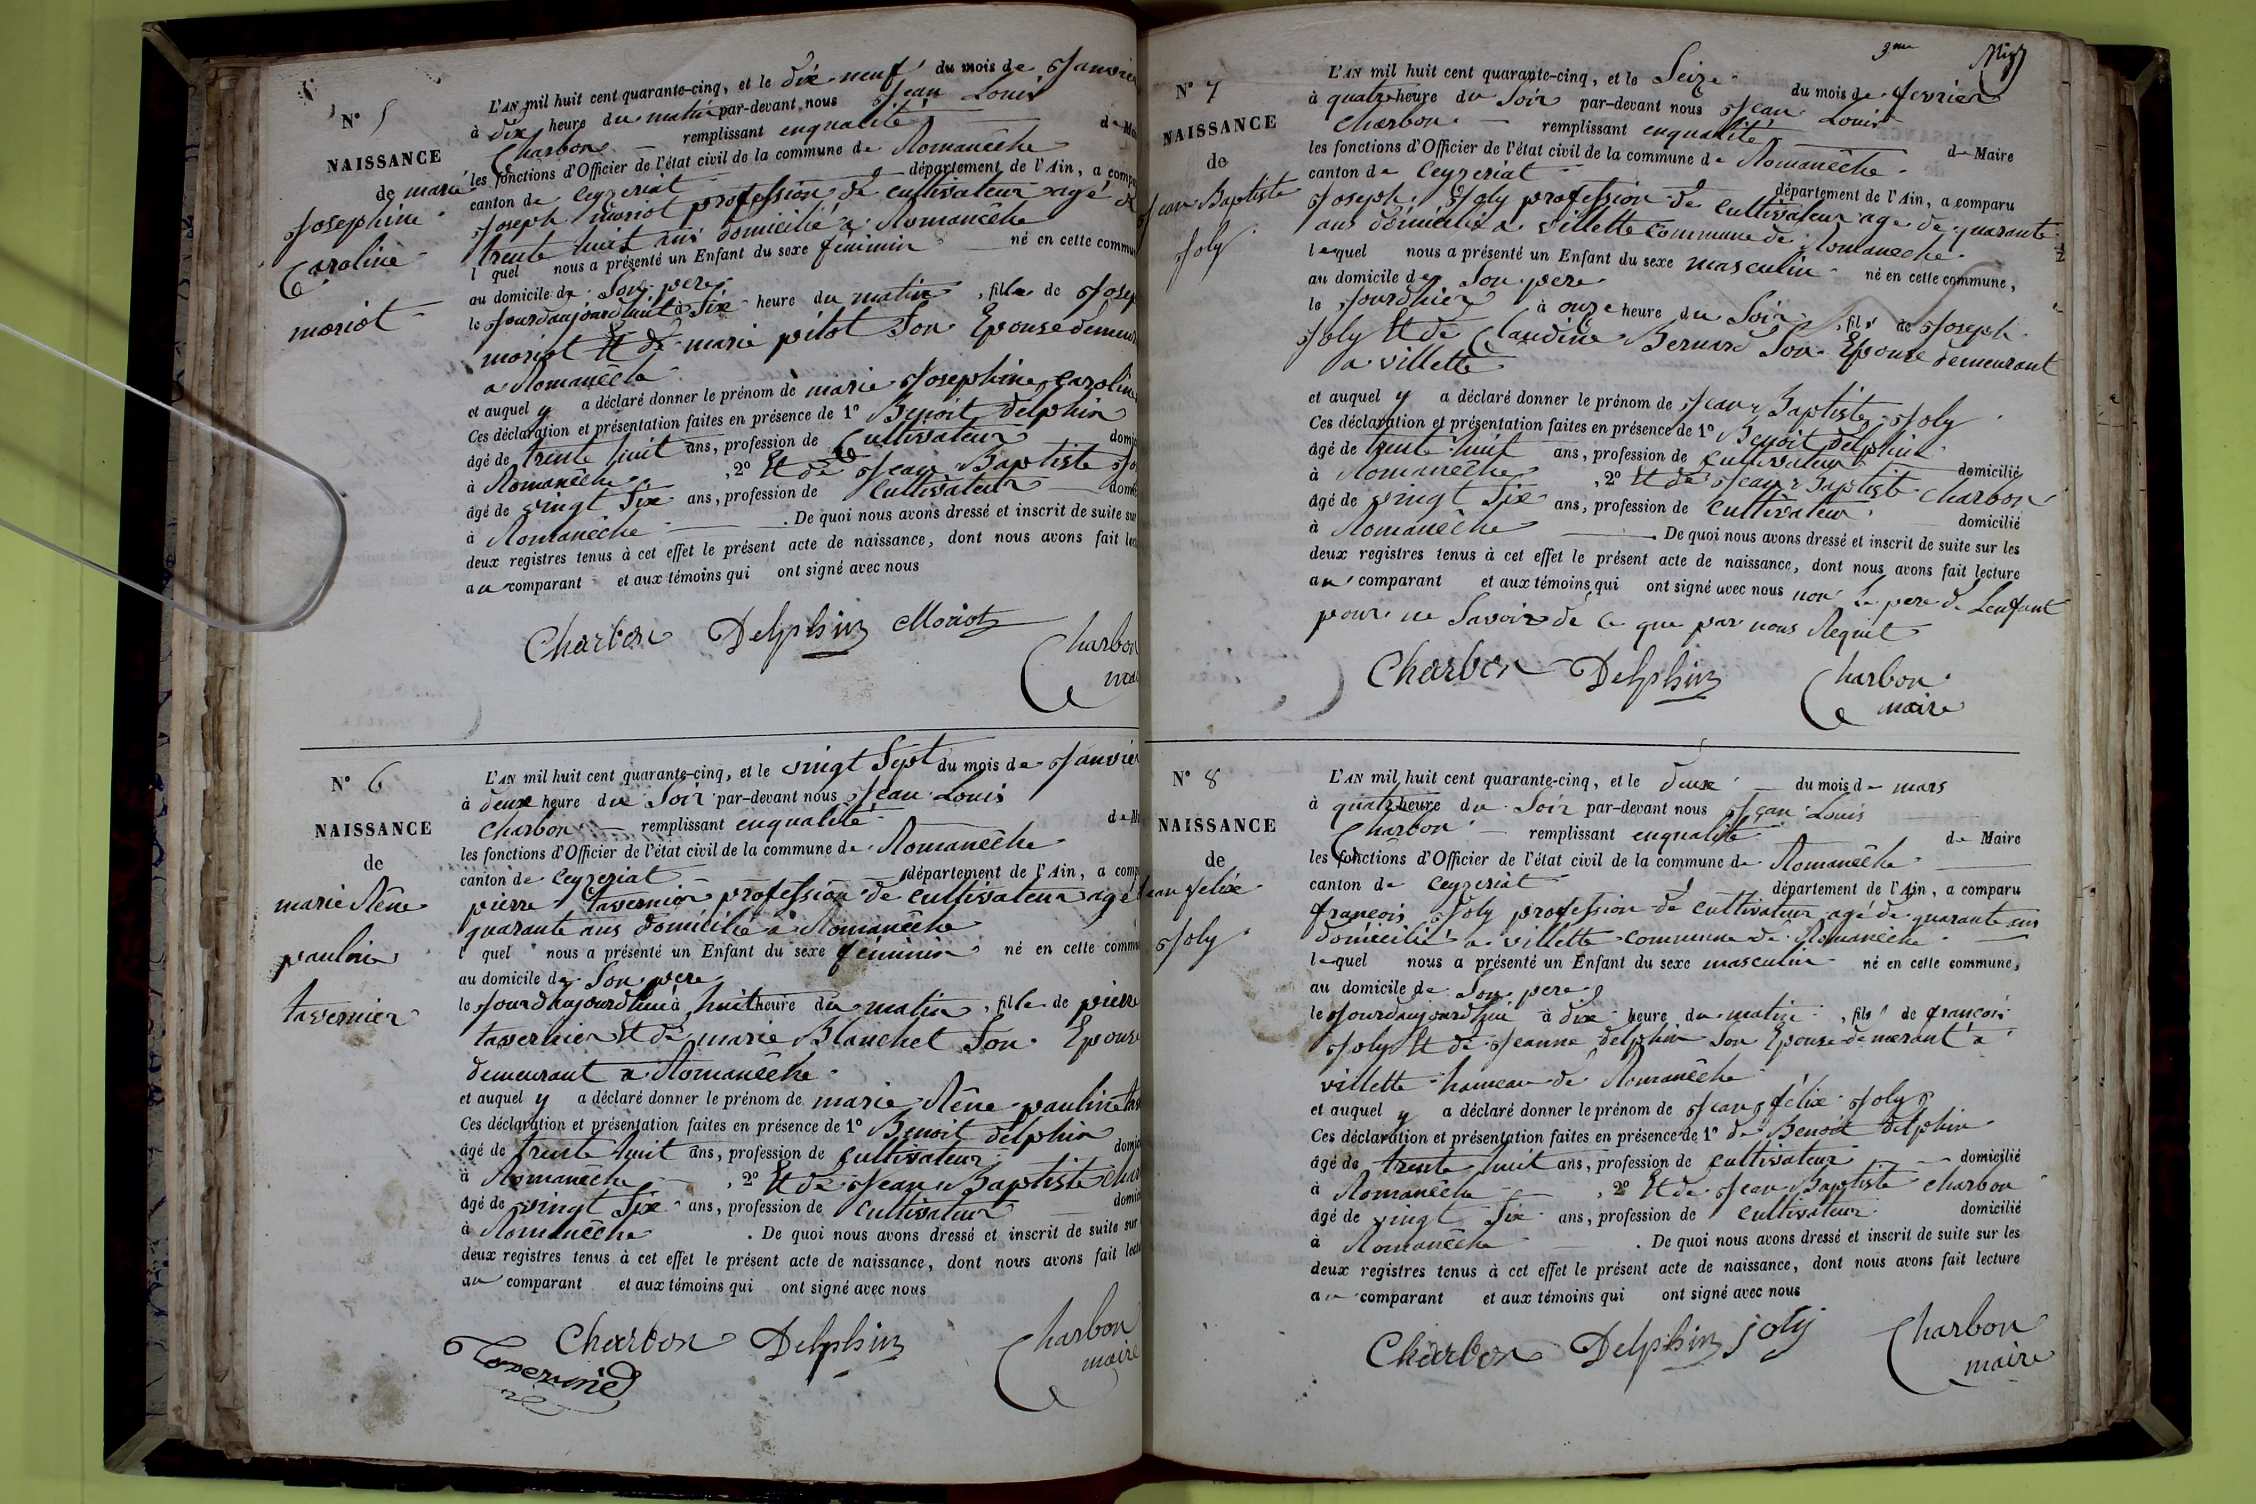 N° 5
NAISSANCE
de marie
Josephine
Caroline
moriot
L'AN mil huit cent quarante-cinq, et le dix neuf du mois de Janvier
à dix heure du matin par-devant nous Jean Louis
Charbon remplissant enqualité de
les fonctions d'Officier de l'état civil de la commune de Romanêche
canton de Ceyzeriat département de l'Ain, a
Joseph moriot profession de cultivateur agé de
trente huit ans domicilié a Romanêche
l quel nous a présenté un Enfant du sexe féminin né en cette
au domicile de Son pere
le Jourdaujourdhuit à Six heure du matin , fille de
moriot Et de marie pitot Son Epouse
a Romanêche
et auquel y a déclaré donner le prénom de marie Josephine Caroline
Ces déclaration et présentation faites en présence de 1° Benoit delphin
âgé de trente huit ans, profession de Cultivateur
à Romanêche , 2° Et de Jean Baptiste
âgé de vingt Six ans, profession de Cultivateur
à Romanêche . De quoi nous avons dressé et inscrit de suite sur
deux registres tenus à cet effet le présent acte de naissance, dont nous avons fait
au comparant et aux témoins qui ont signé avec nous
Charbon Delphin Moriot Charbon
N° 6
NAISSANCE
de
marie Rêne
pauline
tavernier
L'AN mil huit cent quarante-cinq, et le vingt Sept du mois de Janvier
à deux heure du Soir par-devant nous Jean Louis
Charbon remplissant enqualité de
les fonctions d'Officier de l'état civil de la commune de Romanêche
canton de Ceyzeriat département de l'Ain, a
pierre tavernier profession de cultivateur agé
quarante ans domicilié a Romanêche
l quel nous a présenté un Enfant du sexe féminin né en cette
au domicile de Son pere
le Jourdhaujourdhui à huit heure du matin , fille de pierre
tavernier Et de marie Blanchet Son Epouse
demeurant a Romanêche
et auquel y a déclaré donner le prénom de marie Rêne pauline
Ces déclaration et présentation faites en présence de 1° Benoit delphin
âgé de trente huit ans, profession de cultivateur
à Romanêche , 2° Et de Jean Baptiste
âgé de vingt Six ans, profession de cultivateur
à Romanêche . De quoi nous avons dressé et inscrit de suite sur
deux registres tenus à cet effet le présent acte de naissance, dont nous avons fait
au comparant et aux témoins qui ont signé avec nous
Charbon Delphin Charbon
maire
3me
N° 7
NAISSANCE
de
Jean Baptiste
Joly
L'AN mil huit cent quarante-cinq, et le Seize du mois de fevrier
à quatre heure du Soir par-devant nous Jean Louis
Charbon remplissant enqualité de Maire
les fonctions d'Officier de l'état civil de la commune de Romanêche
canton de Ceyzeriat département de l'Ain, a comparu
Joseph Joly profession de cultivateur age de quarante
ans domicilié a villette commune de Romaneche
lequel nous a présenté un Enfant du sexe masculin né en cette commune,
au domicile de Son pere
le Jourdhier à onze heure du Soir , fils de Joseph
Joly Et de Claudine Bernard Son Epouse demeurant
a villette
et auquel y a déclaré donner le prénom de Jean Baptiste Joly
Ces déclaration et présentation faites en présence de 1° Benoit delphin
âgé de trente huit ans, profession de cultivateur domicilié
à Romanêche , 2° Et de Jean Baptiste Charbon
âgé de vingt Six ans, profession de Cultivateur domicilié
à Romanêche . De quoi nous avons dressé et inscrit de suite sur les
deux registres tenus à cet effet le présent acte de naissance, dont nous avons fait lecture
au comparant et aux témoins qui ont signé avec nous non Le pere de Lenfant
pour ne Savoir de Ce que par nous Requit
Charbon Delphin Charbon
maire
N° 8
NAISSANCE
de
Jean felix
Joly
L'AN mil huit cent quarante-cinq, et le deux du mois de mars
à quatr heure du Soir par-devant nous Jean Louis
Charbon remplissant enqualité de Maire
les fonctions d'Officier de l'état civil de la commune de Romanêche
canton de Ceyzeriat département de l'Ain, a comparu
françois Joly profession de cultivateur agé de quarante ans
domicilié a villette commune de Romanêche
lequel nous a présenté un Enfant du sexe masculin né en cette commune,
au domicile de Son pere
le Jourdaujourdhui à dix heure du matin , fils de françois
Joly Et de Jeanne delphin Son Epouse demerant a
villette hameau de Romanêche
et auquel y a déclaré donner le prénom de Jean félix Joly
Ces déclaration et présentation faites en présence de 1° de Benoit delphin
âgé de trente huit ans, profession de cultivateur domicilié
à Romanêche , 2° Et de Jean Baptiste Charbon
âgé de vingt Six ans, profession de cultivateur domicilié
à Romanêche . De quoi nous avons dressé et inscrit de suite sur les
deux registres tenus à cet effet le présent acte de naissance, dont nous avons fait lecture
au comparant et aux témoins qui ont signé avec nous
Charbon Delphin joly Charbon
maire